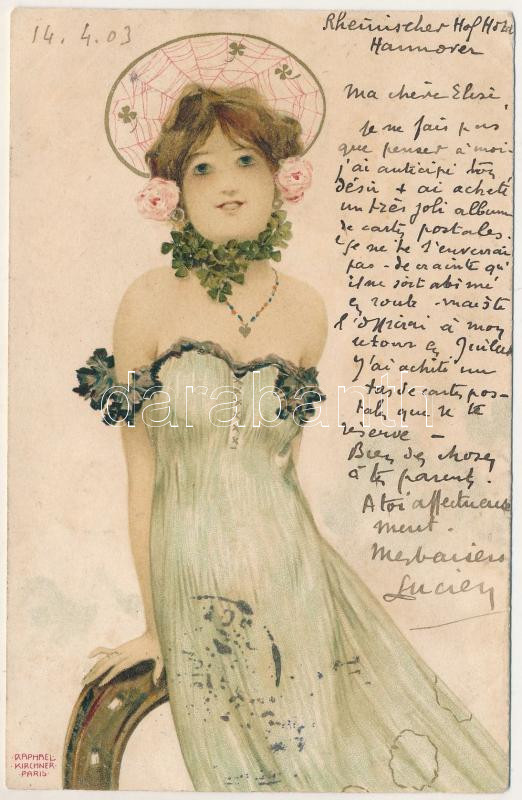 14. 4. 03
Rheinischer Hof Hotel
Hannover
Ma chère Elise,
Je ne fais pas
que penser à moi-
j'ai anticipé ton
désir + ai acheté
un très joli album
de cartes postales.
Je ne te l'enverrai
pas - de crainte qu'
il ne soit abimé
en route - mais te
l'offrirai à mon
retour en Juillet
J'ai acheté un
tas de cartes pos-
tales que je te
réserve -
Bien des choses
à tes parents.
A toi affectueuse
ment.
Mes baisers
Lucien
darabanth
RAPHAEL
KIRCHNER
PARIS